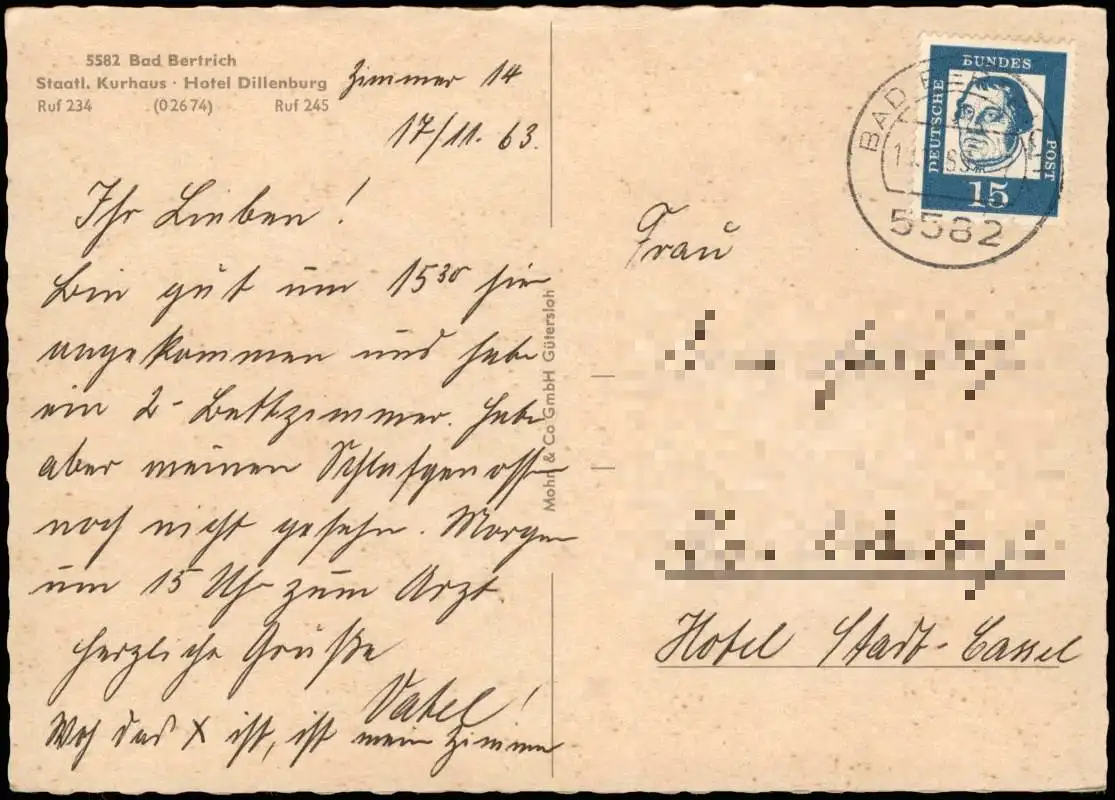 5582 Bad Bertrich
Staatl. Kurhaus · Hotel Dillenburg
Ruf 234 (02674) Ruf 245
Zimmer 14
17/11. 63.
Ihr Lieben!
Bin gut um 15³⁰ hier
angekommen und habe
ein 2-Bettzimmer. Habe
aber meinen Schlafgenossen
noch nicht gesehn. Morgen
um 15 Uhr zum Arzt.
Herzliche Grüße
Vatel!
Wo das X ist, ist mein Zimmer
Mohn & Co GmbH Gütersloh
DEUTSCHE BUNDES POST
15
BAD
5582
Frau
Hotel Stadt-Cassel